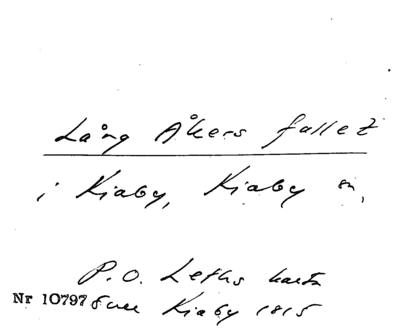 Lång Åkers fallet
i Kiaby, Kiaby sn,
P.O. Leths karta
Nr 10797 över Kiaby 1815